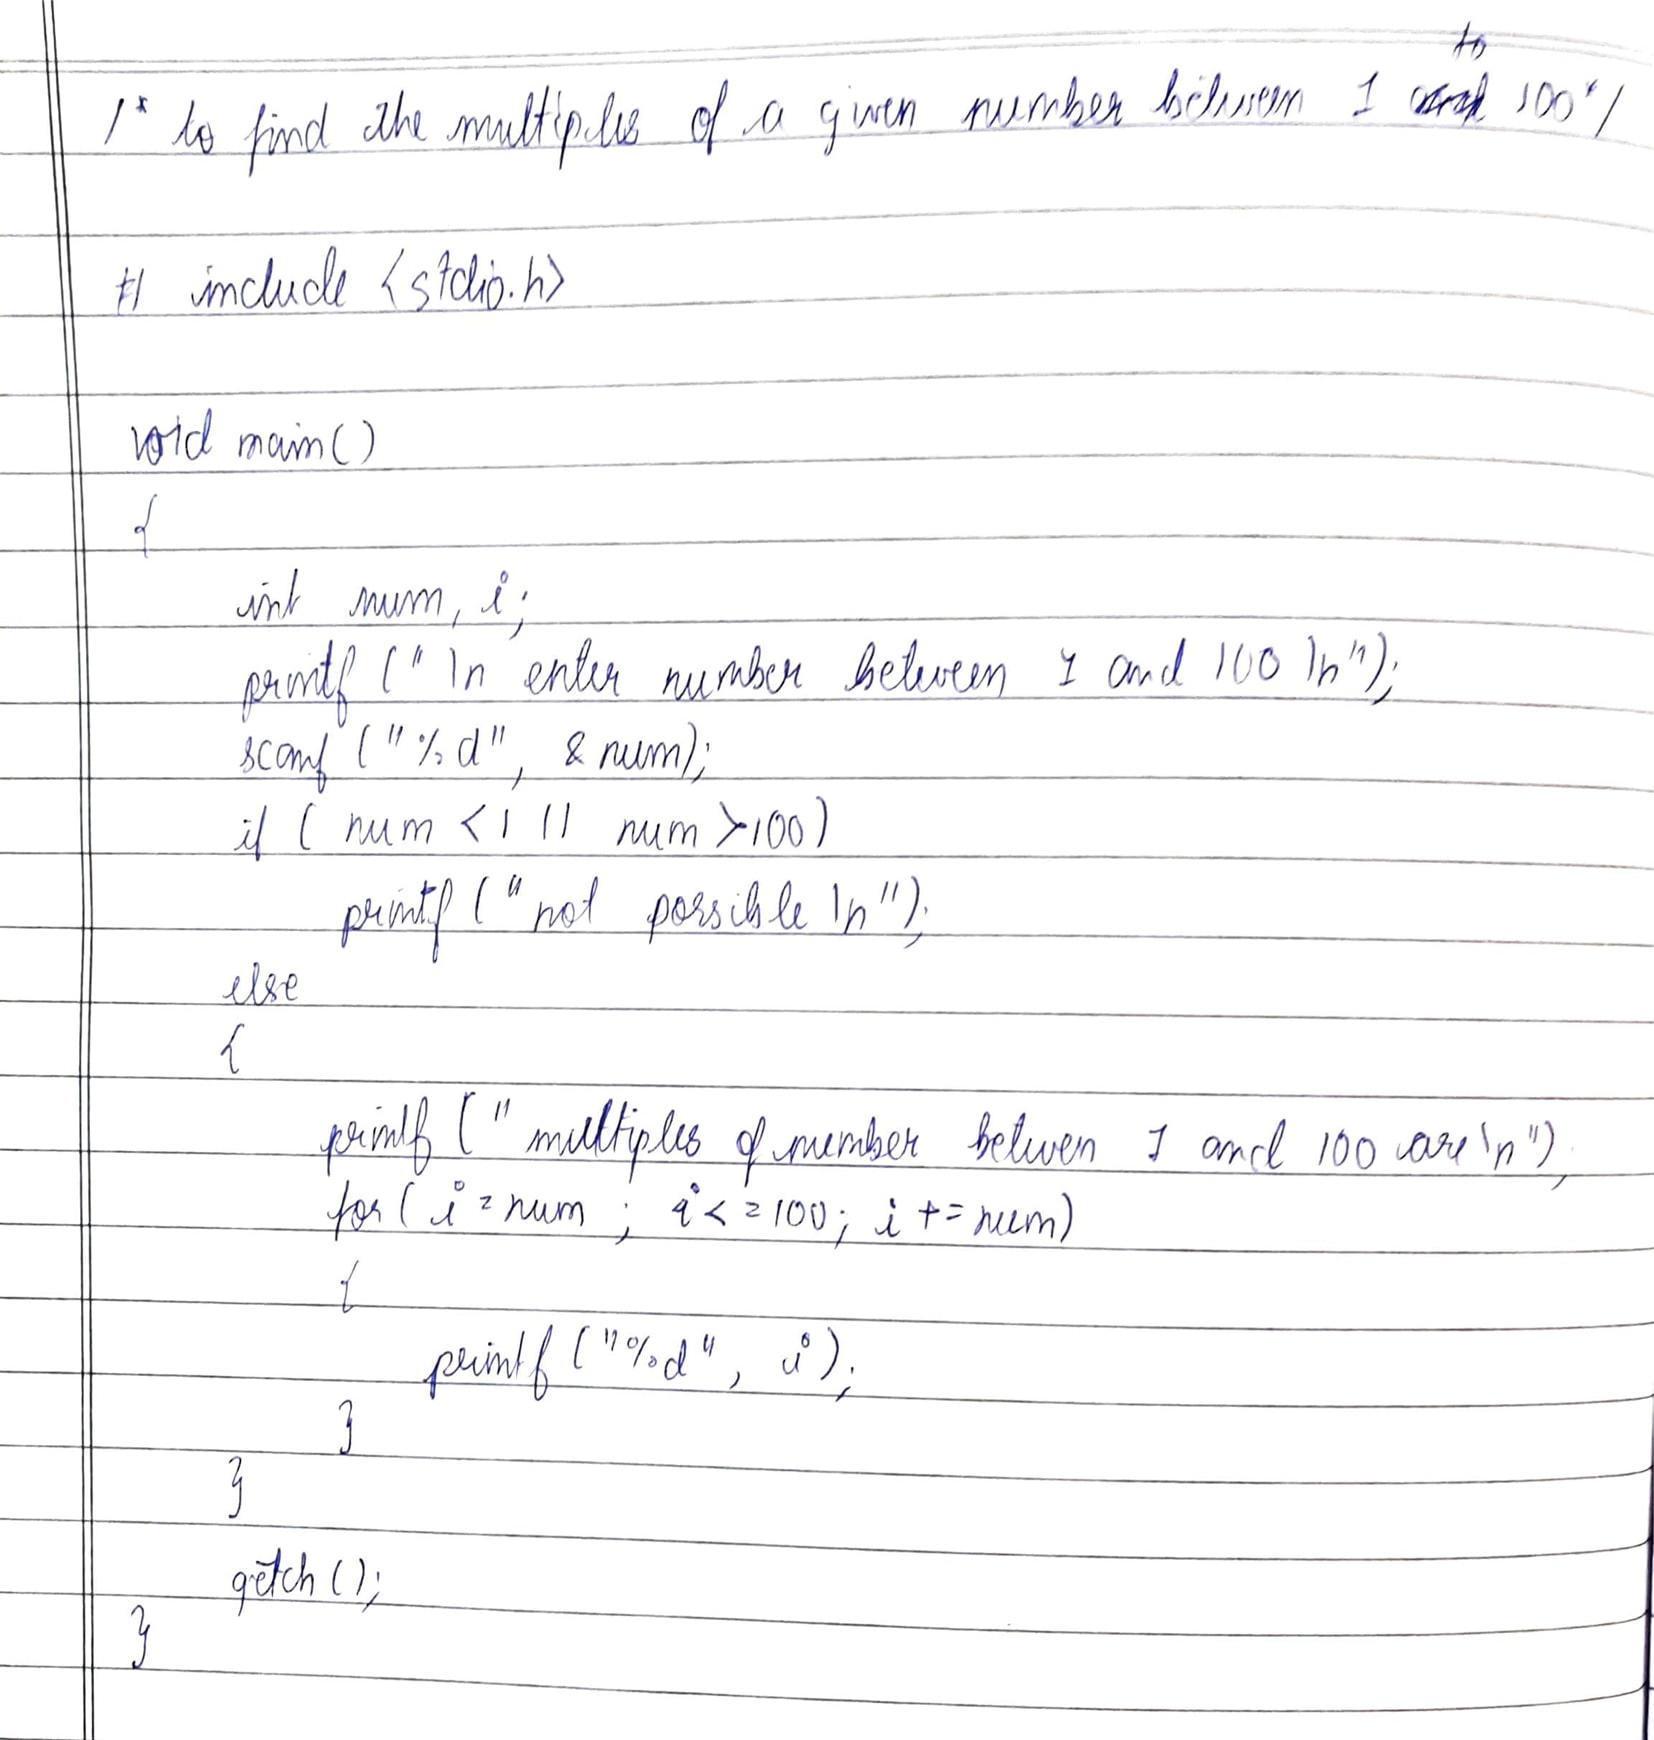 to
/* to find the multiples of a given number between 1 and 100 */
# include <stdio.h>
void main()
{
int num, i;
printf ("\n enter number between 1 and 100 \n");
scanf ("%d", &num);
if ( num <1 || num >100)
printf ("not possible \n");
else
{
printf (" multiples of number between 1 and 100 are \n");
for ( i = num ; i <= 100; i += num)
{
printf ("%d", i);
}
}
getch ();
}